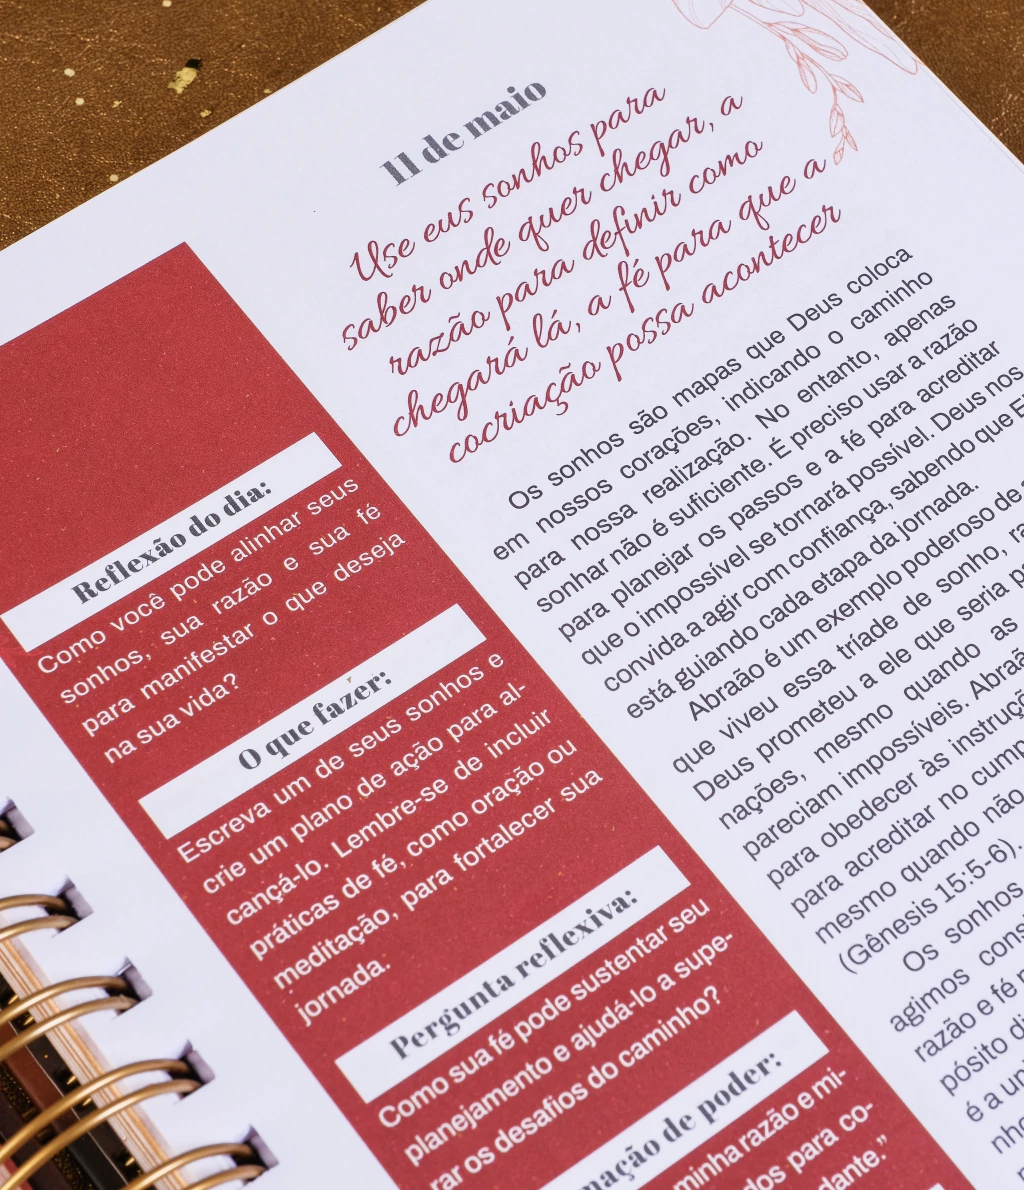 11 de maio
Use eus sonhos para
saber onde quer chegar, a
razão para definir como
chegará lá, a fé para que a
cocriação possa acontecer
Reflexão do dia:
Como você pode alinhar seus
sonhos, sua razão e sua fé
para manifestar o que deseja
na sua vida?
O que fazer:
Escreva um de seus sonhos e
crie um plano de ação para al-
cançá-lo. Lembre-se de incluir
práticas de fé, como oração ou
meditação, para fortalecer sua
jornada.
Pergunta reflexiva:
Como sua fé pode sustentar seu
planejamento e ajudá-lo a supe-
rar os desafios do caminho?
mação de poder:
minha razão e mi-
dos para co-
dante.”
Os sonhos são mapas que Deus coloca
em nossos corações, indicando o caminho
para nossa realização. No entanto, apenas
sonhar não é suficiente. É preciso usar a razão
para planejar os passos e a fé para acreditar
que o impossível se tornará possível. Deus nos
convida a agir com confiança, sabendo que E
está guiando cada etapa da jornada.
Abraão é um exemplo poderoso de
que viveu essa tríade de sonho, ra
Deus prometeu a ele que seria p
nações, mesmo quando as
pareciam impossíveis. Abraã
para obedecer às instruçõ
para acreditar no cump
mesmo quando não
(Gênesis 15:5-6).
Os sonhos
agimos cons
razão e fé n
pósito di
é a un
nho